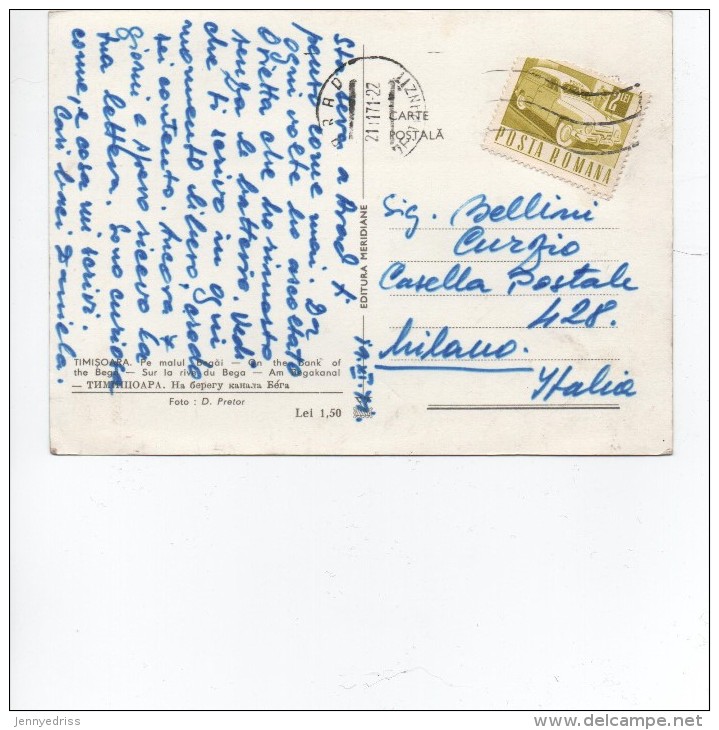 Sto bene a Arad +
però come mai. Da
ogni volta ho ascoltato
Orietta che ho rimasto
senza le batterie. Vedi
che ti scrivo in ogni
momento libero, credo
sei contento. Ancora 7
giorni e spero ricevo la
tua lettera. Sono curiosa
come, e cosa mi scrivi.
Cari baci Daniela.
TIMIȘOARA. Pe malul Begăi — On the bank of
the Bega — Sur la rive du Bega — Am Begakanal
— ТИМИШОАРА. На берегу канала Бéга
Foto : D. Pretor
Lei 1,50
EDITURA MERIDIANE
19.XI.71.
ARAD
21 1171-22
CARTE
POȘTALĂ
2 LEI
POSTA ROMANA
Sig. Bellini
Curzio
Casella Postale
428.
Milano.
Italia
jennyedriss
www.delcampe.net